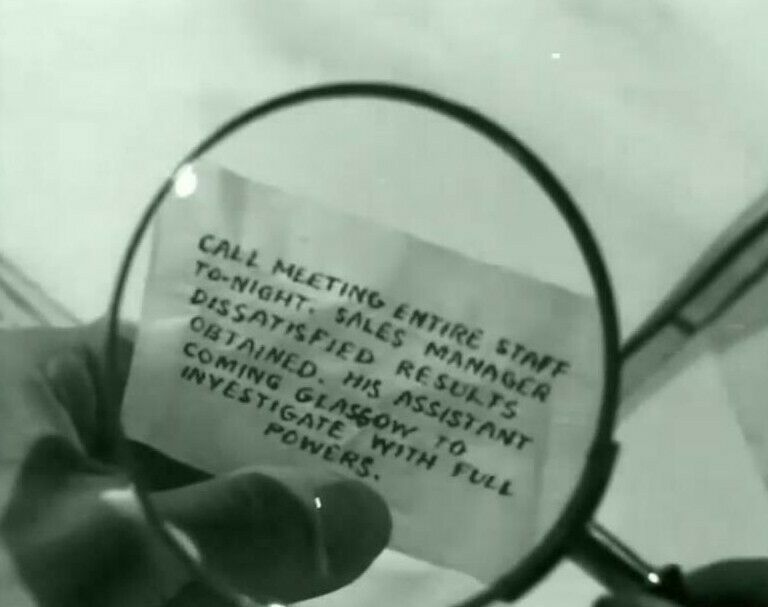 CALL MEETING ENTIRE STAFF
TO-NIGHT. SALES MANAGER
DISSATISFIED RESULTS
OBTAINED. HIS ASSISTANT
COMING GLASGOW TO
INVESTIGATE WITH FULL
POWERS.